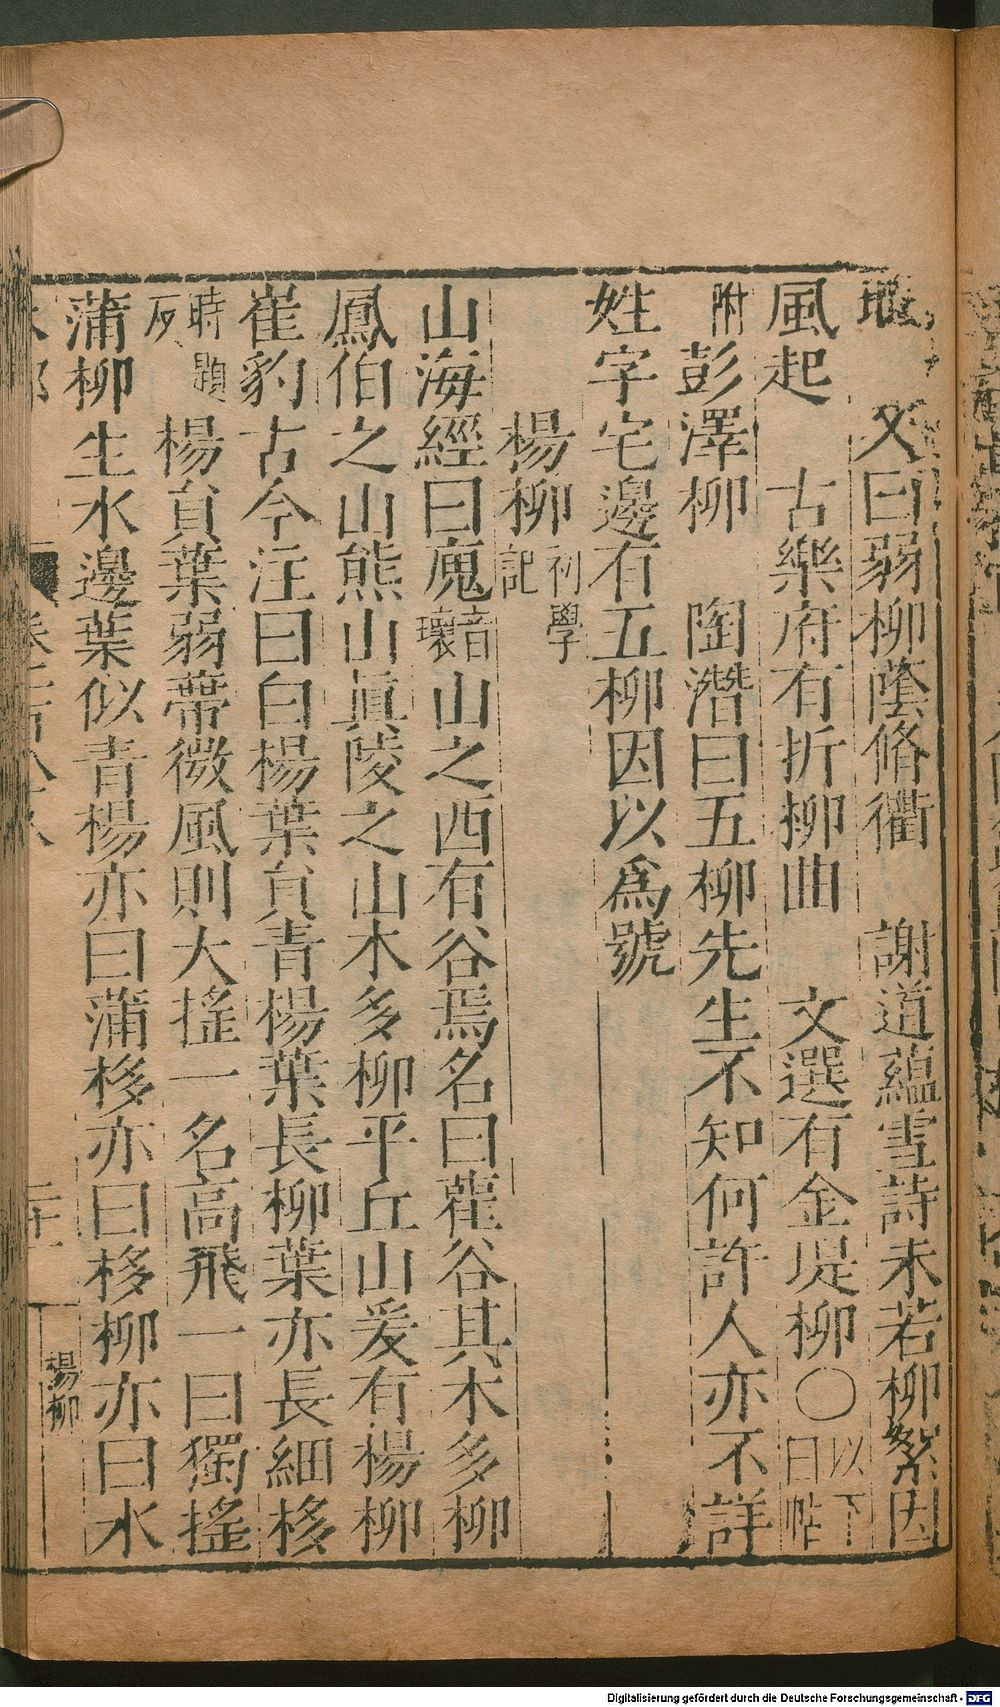 又曰弱柳蔭脩衢　謝道蘊雪詩未若柳絮因
風起　古樂府有折柳曲　文選有金堤柳〇以下白帖
附彭澤柳　陶潛曰五柳先生不知何許人亦不詳
姓字宅邊有五柳因以為號
楊柳初學記
山海經曰廆音瓌山之西有谷焉名曰雚谷其木多柳
鳳伯之山熊山真陵之山木多柳平丘山爰有楊柳
崔豹古今注曰白楊葉負青楊葉長柳葉亦長細栘
楊負葉弱蔕微風則大搖一名高飛一曰獨搖
蒲柳生水邊葉似青楊亦曰蒲栘亦曰栘柳亦曰水
楊柳
Digitalisierung gefördert durch die Deutsche Forschungsgemeinschaft - DFG